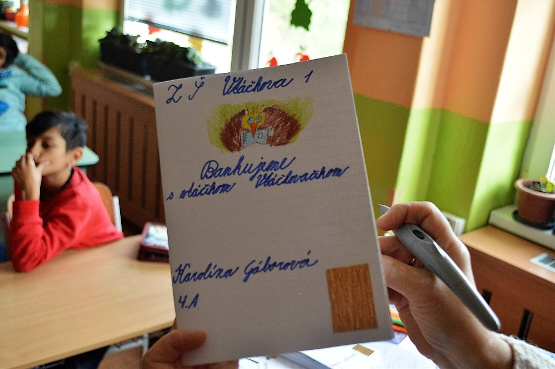 Z Š Vtáčkova 1
Ďankujeme
s vtáčikom Vtáčkováčikom
Karolína Gáborová
4.A